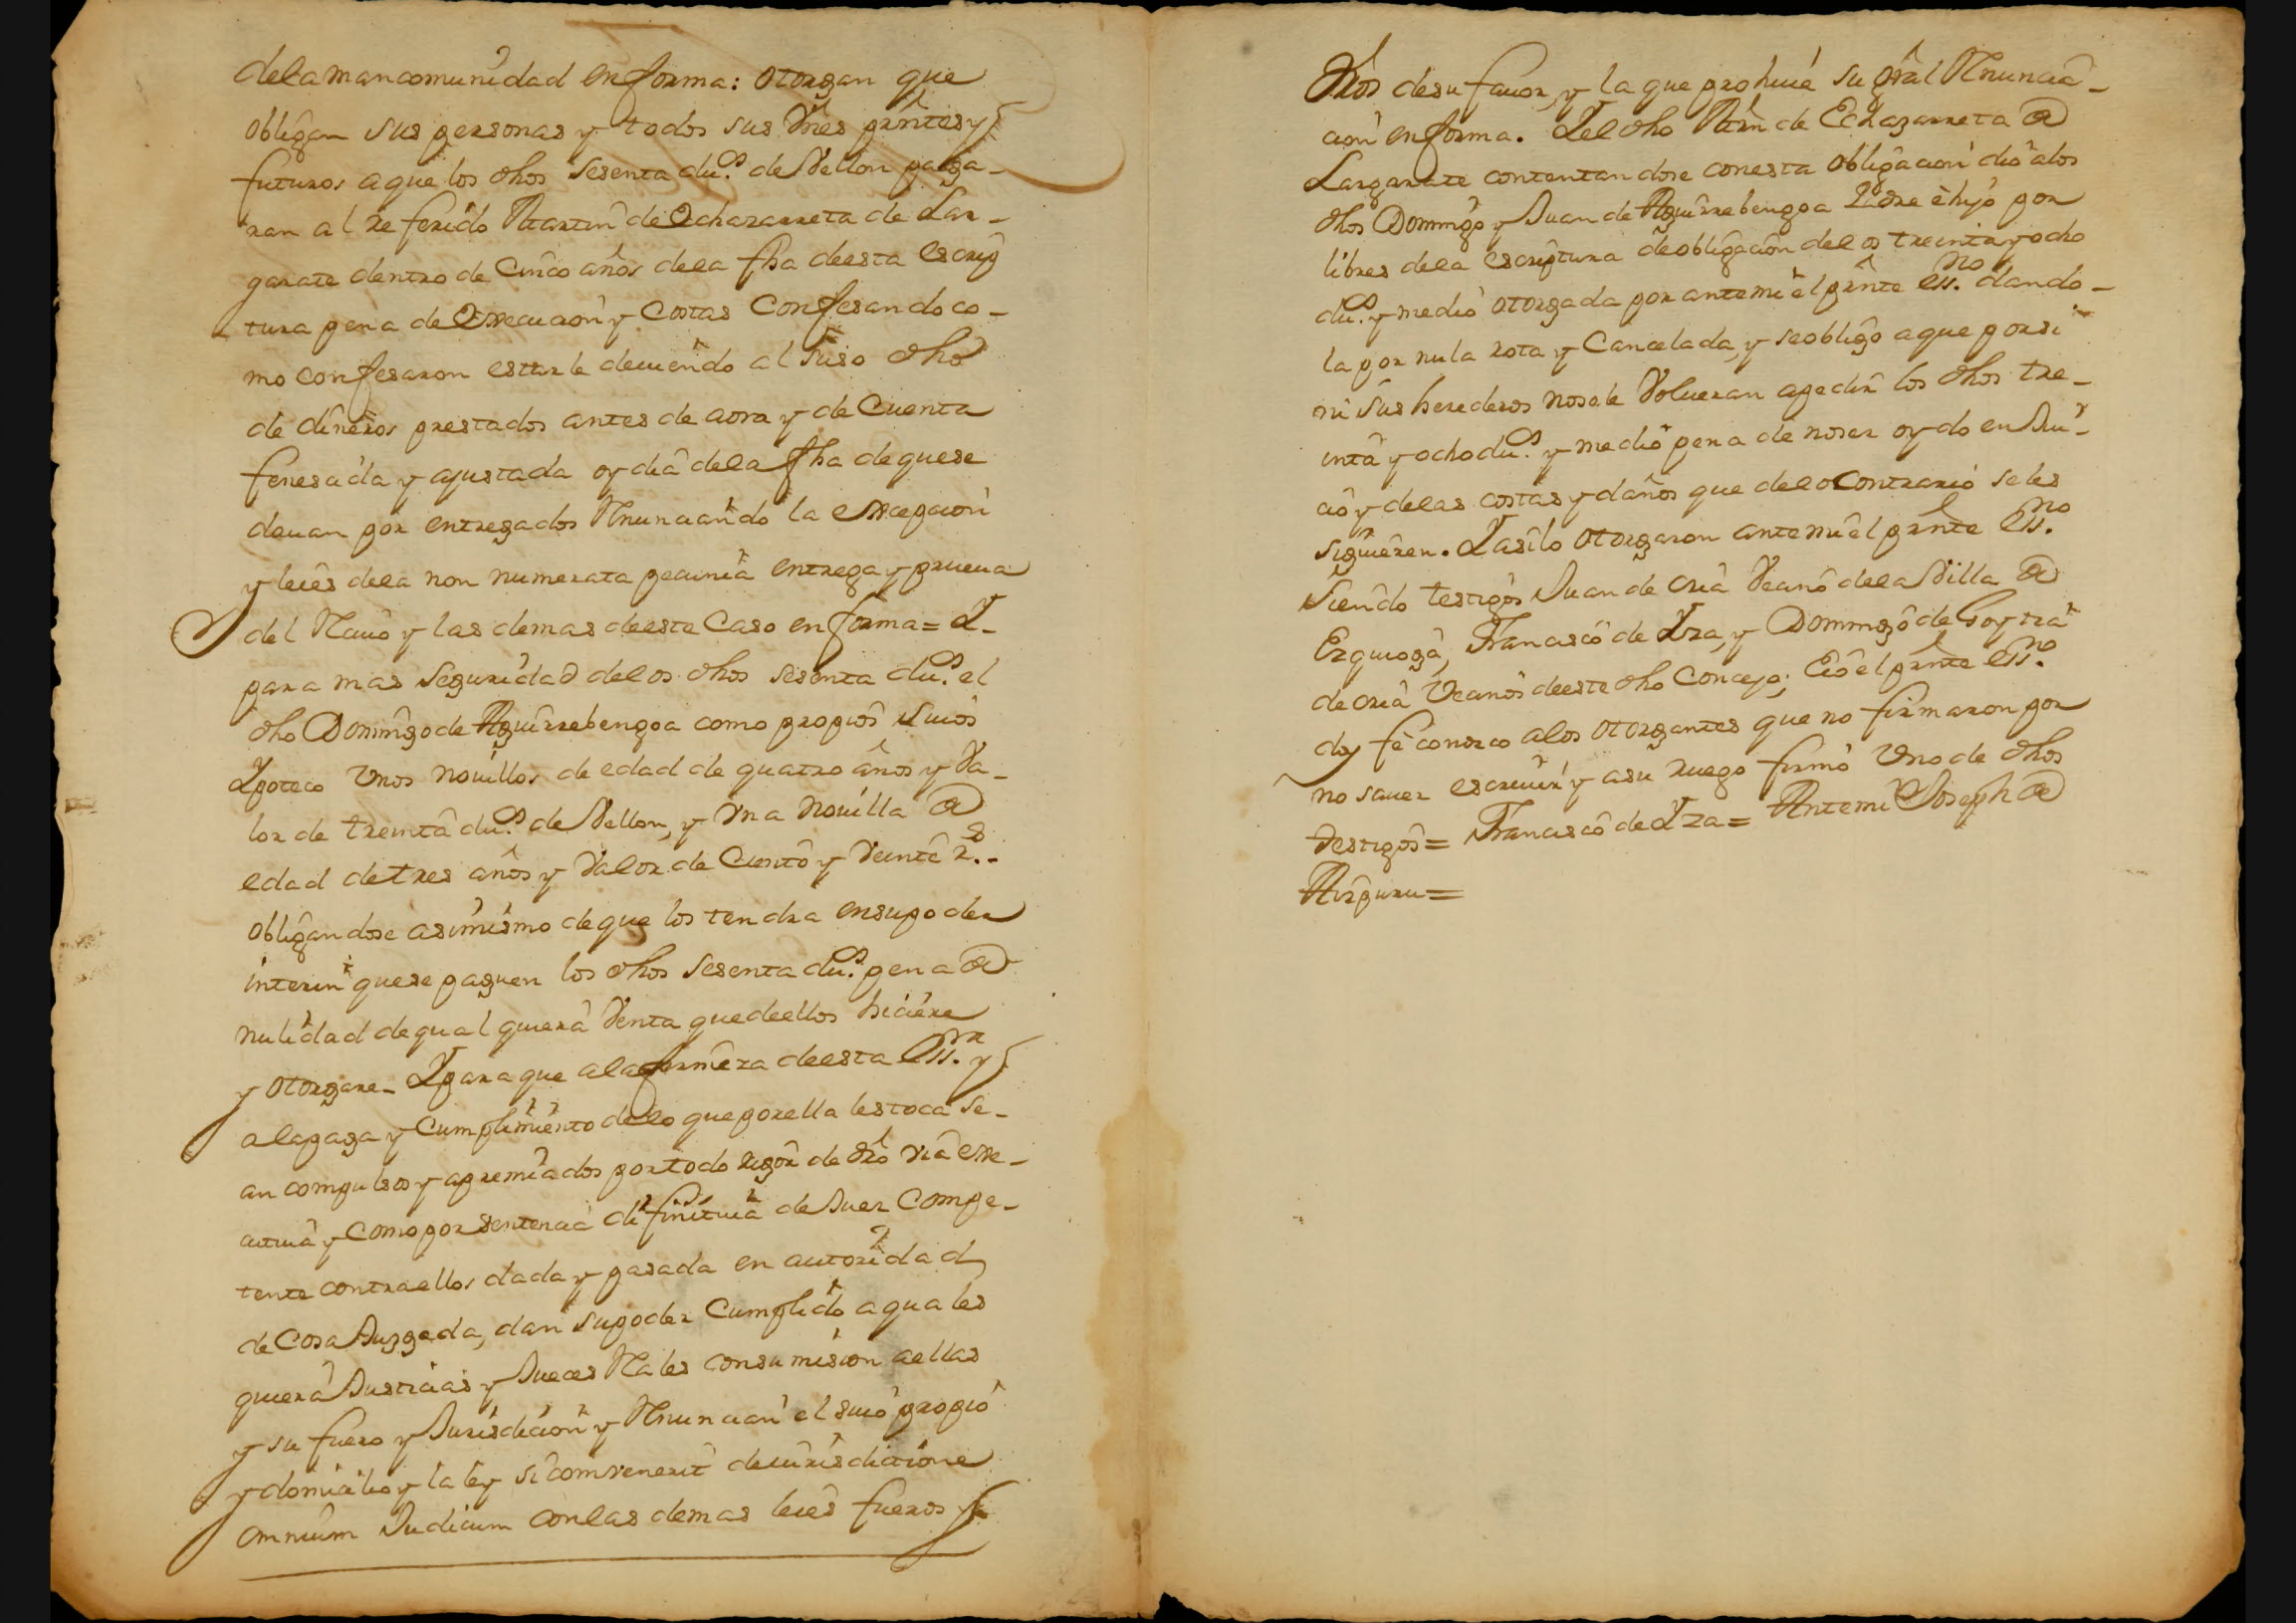 dela mancomunidad en forma: otorgan que
obligan sus personas y todos sus vnes prntes y
futuros aque los dhos sesenta du.s de Vellon paga-
ran al referido Martin de Echazarreta de Lar-
garate dentro de Cinco años dela fha deesta escrip
tura pena de Execucion y Costas Confesando co-
mo confesaron estarle deuiendo al suso dho
de dineros prestados antes de aora y de Cuenta
fenesida y ajustada oy dia dela fha de que se
dauan por entregados Rnunciando la excepcion
y leies dela non numerata pecunia entrega y prueua
del Reciuo y las demas deeste Caso en forma = Y-
para mas seguridad delos dhos sesenta du.s el
dho Domingo de Aguirrebengoa como propios suios
Ypoteco Vnos nouillos de edad de quatro años y Va-
lor de treinta du.s de Vellon, y Vna nouilla de
edad de tres años y Valor de Ciento y Veinte r.s-
obligandose asimismo de que los tendra ensupoder
interin que se paguen los dhos sesenta du.s pena de
nulidad de qual quiera Venta que deellos hiciere
y otorgare- Y para que ala firmeza deesta ess.ra y
alapaga y Cumplimiento delo que por ella les toca se-
an compulsos y apremiados por todo rigor de dro via exe-
cutiua y Como por sentencia difinitiua de Juez Compe-
tente contra ellos dada y pasada en autoridad
de Cosa Juzgada, dan su poder Cumplido a qua les
quiera Justicias y Jueces Rales consumision aellas
y su fuero y Jurisdicion y Rnuncian el suio propio
y domicilio y la ley si comvenerit de iurisdictione
omnium Judicum con las demas leies fueros y
dros desu fauor y la que prohiue su gral Rnuncia-
cion en forma. Y el dho Mrn de Echazarreta de
Largarate contentandose con esta obligacion dio alos
dhos Domingo y Juan de Aguirrebengoa Padre è hijo por
libres dela escriptura de obligacion delos treinta y ocho
du.s y medio otorgada por ante mi el prnte ess.no dando-
la por nula rota y Cancelada, y se obligo a que por si
ni sus herederos nosele Volueran a pedir los dhos tre-
inta y ocho du.s y medio pena de no ser oydo en Jui-
cio y delas costas y daños que delo Contrario se les
siguieren. Y asi lo otorgaron ante mi el prnte ess.no
siendo testigos Juan de oria Vecino dela Villa de
Ezquioga, Francisco de Yza, y Domingo de Goytia
de oria Vecinos deeste dho Concejo; E io el prnte ess.no
doy fè conozco alos otorgantes que no firmaron por
no sauer escriuir y asu ruego firmò Vno de dhos
testigos = Francisco de Yza = Ante mi Joseph de
Aizpuru =